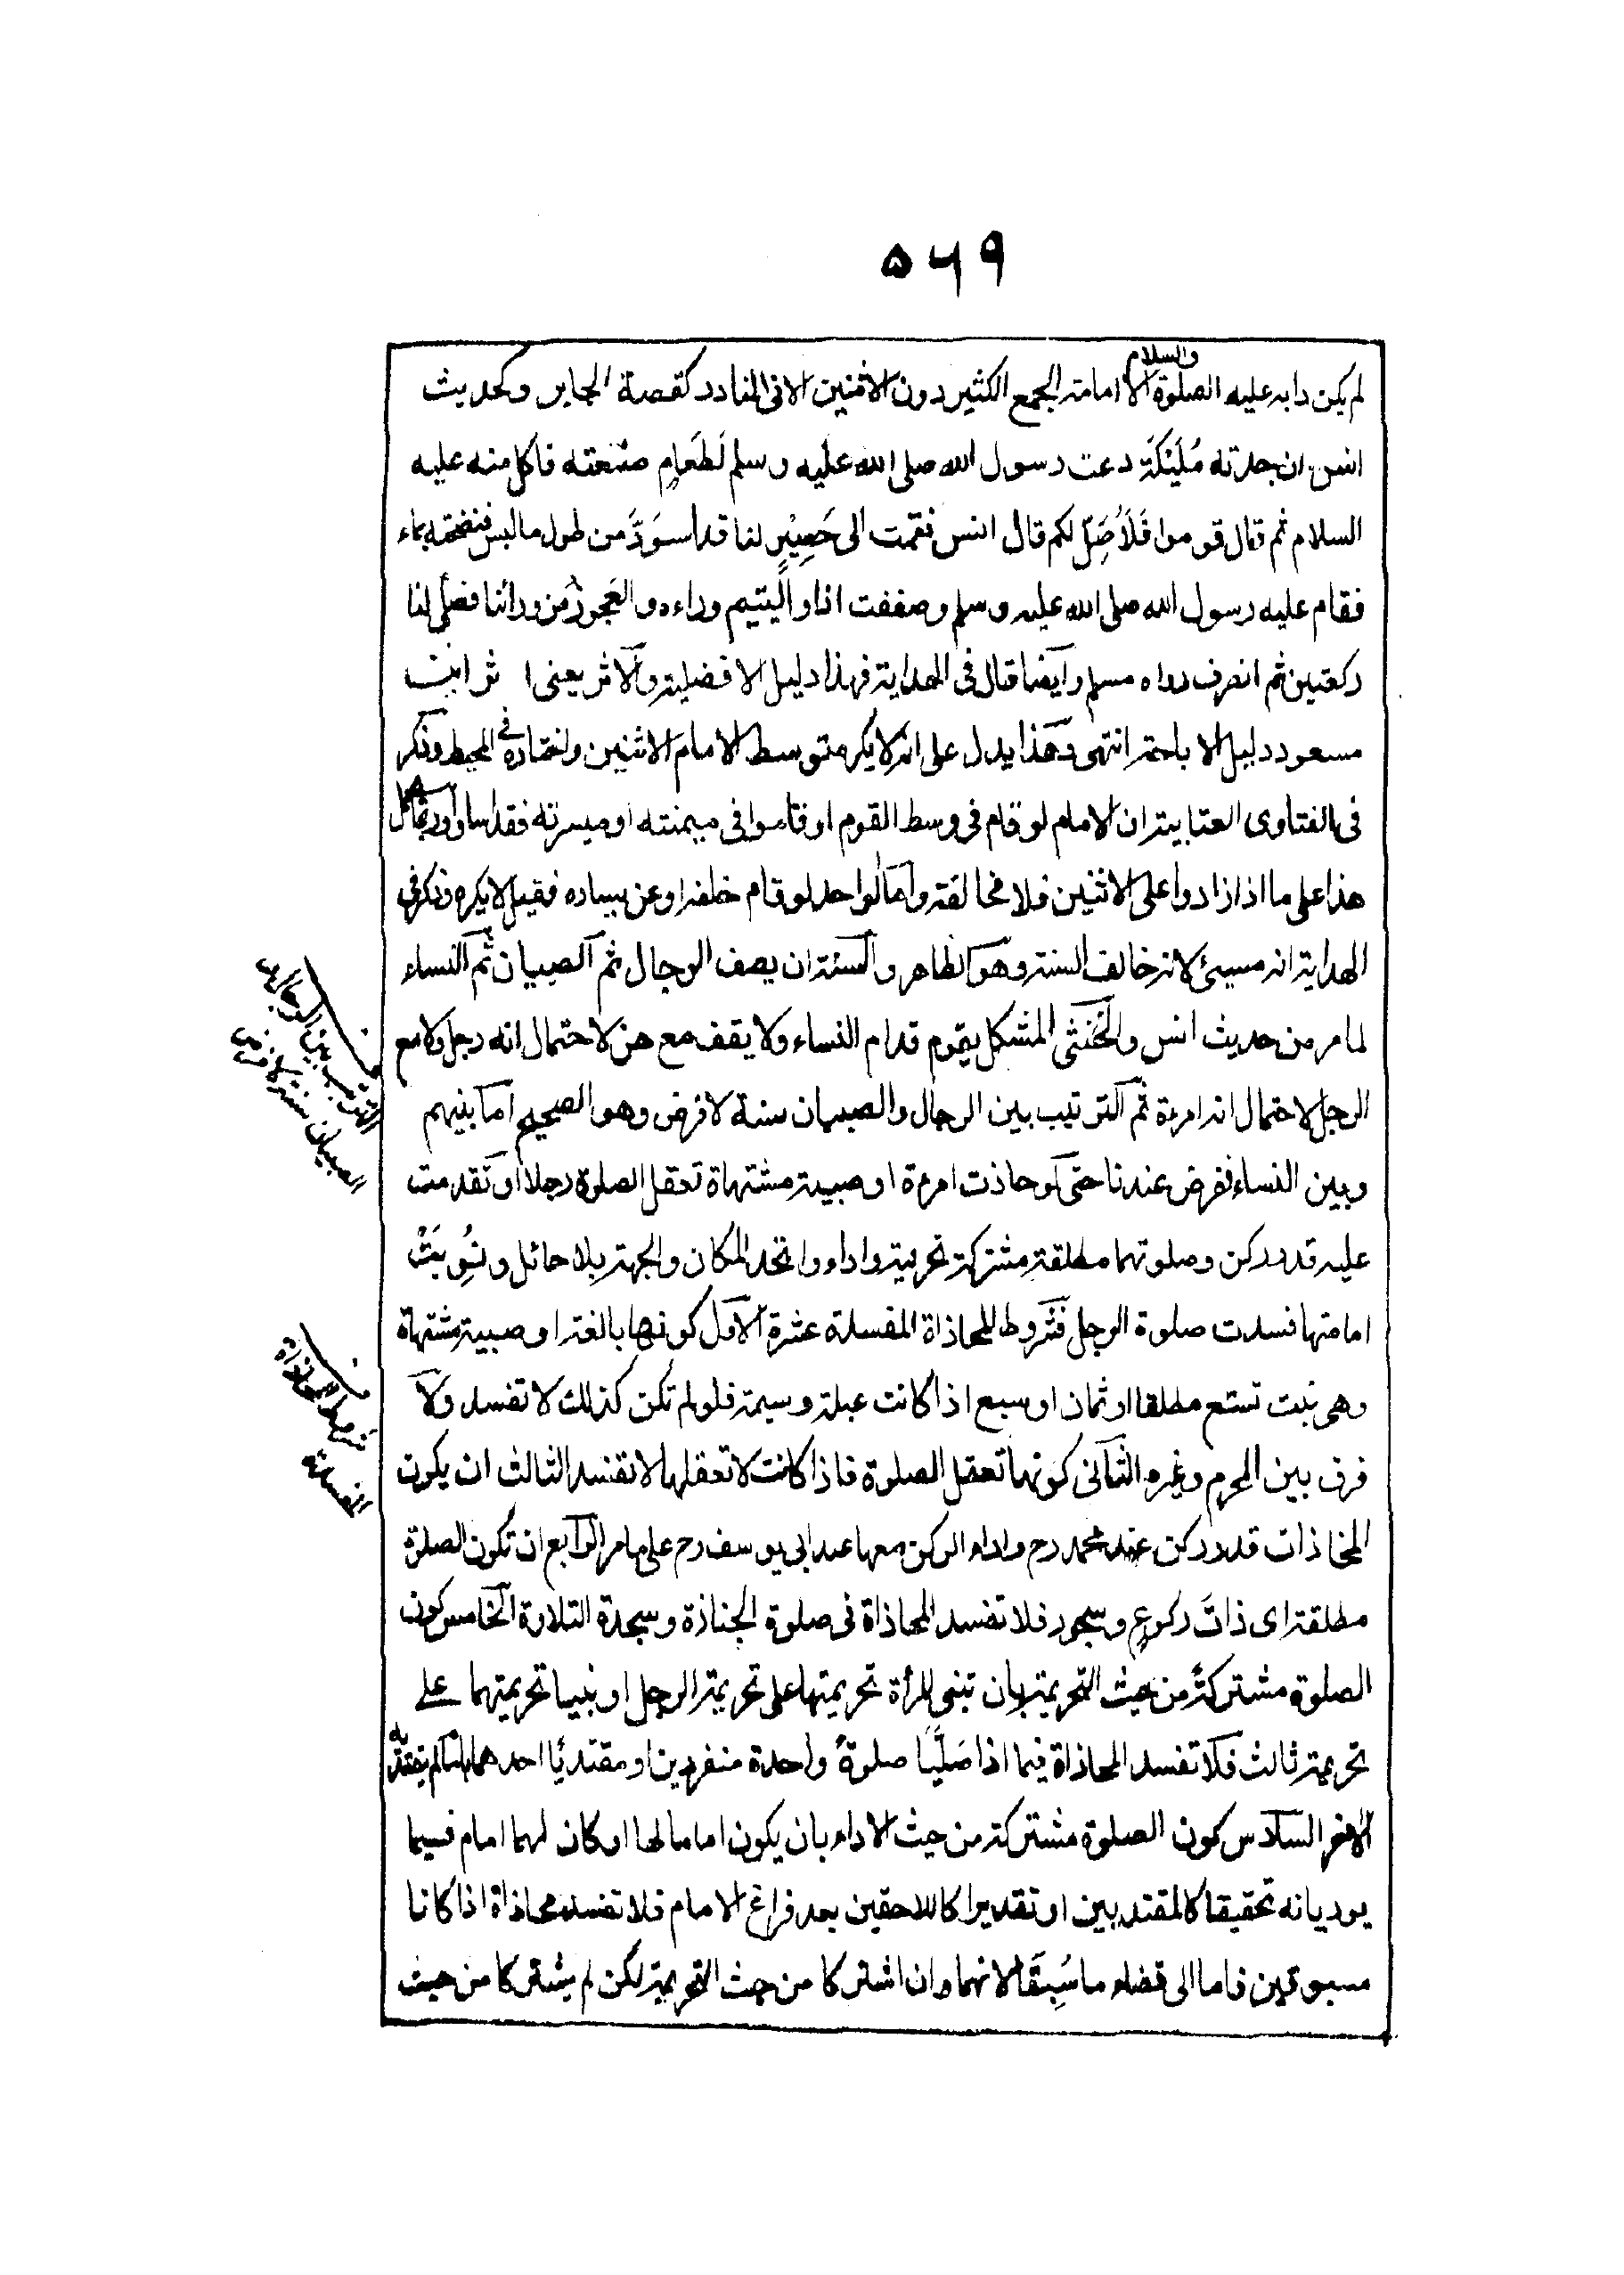 ۵۶۹
لم یکن دابه علیه الصلوة والسلام الا امامة الجمع الکثیر دون الاثنین الا فی النادر کقصة الجابر وکحدیث
انس ان جدته مُلَیکَة دعت رسول الله صلی الله علیه وسلم لَطَعَامٍ صنعته فاکل منه علیه
السلام ثم قال قوموا فَلَأُصَلِّ لکم قال انس فقمت الی حَصِیْرٍ لنا قد اسوَدَّ من طول ما لبس فنضحته بماء
فقام علیه رسول الله صلی الله علیه وسلم وصففت انا والیتیم وراءه والعَجوزُ من ورائنا فصلّی لنا
رکعتین ثم انصرف رواه مسلم وایضا قال فی الهدایة فهذا دلیل الافضلیة والاثر یعنی اثر ابن
مسعود دلیل الاباحة انتهی وهذا یدل علی انه لا یکره توسط الامام الاثنین واختاره فی المحیط وذکر
فی الفتاوی العتابیة ان الامام لو قام فی وسط القوم او قاموا فی میمنته او میسرته فقد اساؤا
هذا علی ما اذا زادوا علی الاثنین فلا مخالفة واما الواحد لو قام خلفه او عن یساره فقیل لا یکره وذکر فی
الهدایة انه مسیئ لانه خالف السنة وهو الظاهر والسنة ان یصف الرجال ثم الصبیان ثم النساء
لما مر من حدیث انس والخنثی المشکل یقوم قدام النساء ولا یقف معهن لاحتمال انه رجل ولا مع
الرجل لاحتمال انه امرءة ثم الترتیب بین الرجال والصبیان سنة لا فرض وهو الصحیح اما بینهم
وبین النساء ففرض عندنا حتی لو حاذت امرءة او صبیة مشتهاة تعقل الصلوة رجلا او تقدمت
علیه قدر رکن وصلوتهما مطلقة مشترکة تحریمة واداء واتحد المکان والجهة بلا حائل ونُوِیَتْ
امامتها فسدت صلوة الرجل فشروط المحاذاة المفسدة عشرة الاول کونها بالغة او صبیة مشتهاة
وهی بنت تسع مطلقا او ثمان او سبع اذا کانت عبلة وسیمة فلو لم تکن کذلك لا تفسد ولا
فرق بین المحرم وغیره الثانی کونها تعقل الصلوة فاذا کانت لا تعقلها لا تفسد الثالث ان یکون
المحاذات قدر رکن عند محمد رح واداء الرکن معها عند ابی یوسف رح علی ما مر الرابع ان تکون الصلوة
مطلقة ای ذاتَ رکوعٍ وسجود فلا تفسد المحاذاة فی صلوة الجنازة وسجدة التلاوة الخامس کون
الصلوة مشترکةً من حیث التحریمة بان تبنی المرأة تحریمتها علی تحریمة الرجل او بنیا تحریمتهما علی
تحریمة ثالث فلا تفسد المحاذاة فیما اذا صَلَّیَا صلوةً واحدة منفردین او مقتدیًا احدهما بامام لم یقتد به
الاخر السادس کون الصلوة مشترکة من حیث الاداء بان یکون اماما لها او کان لهما امام فیما
یودیانه تحقیقا کالمقتدیین او تقدیرا کاللاحقین بعد فراغ الامام فلا تفسد محاذاة اذا کانا
مسبوقین قاما الی قضاء ما سُبِقَا لانهما وان اشترکا من حیث التحریمة لکن لم یشترکا من حیث
الترتیب بین الرجال و
الصبیان سنة لا فرض
شروط المحاذاة
المفسدة